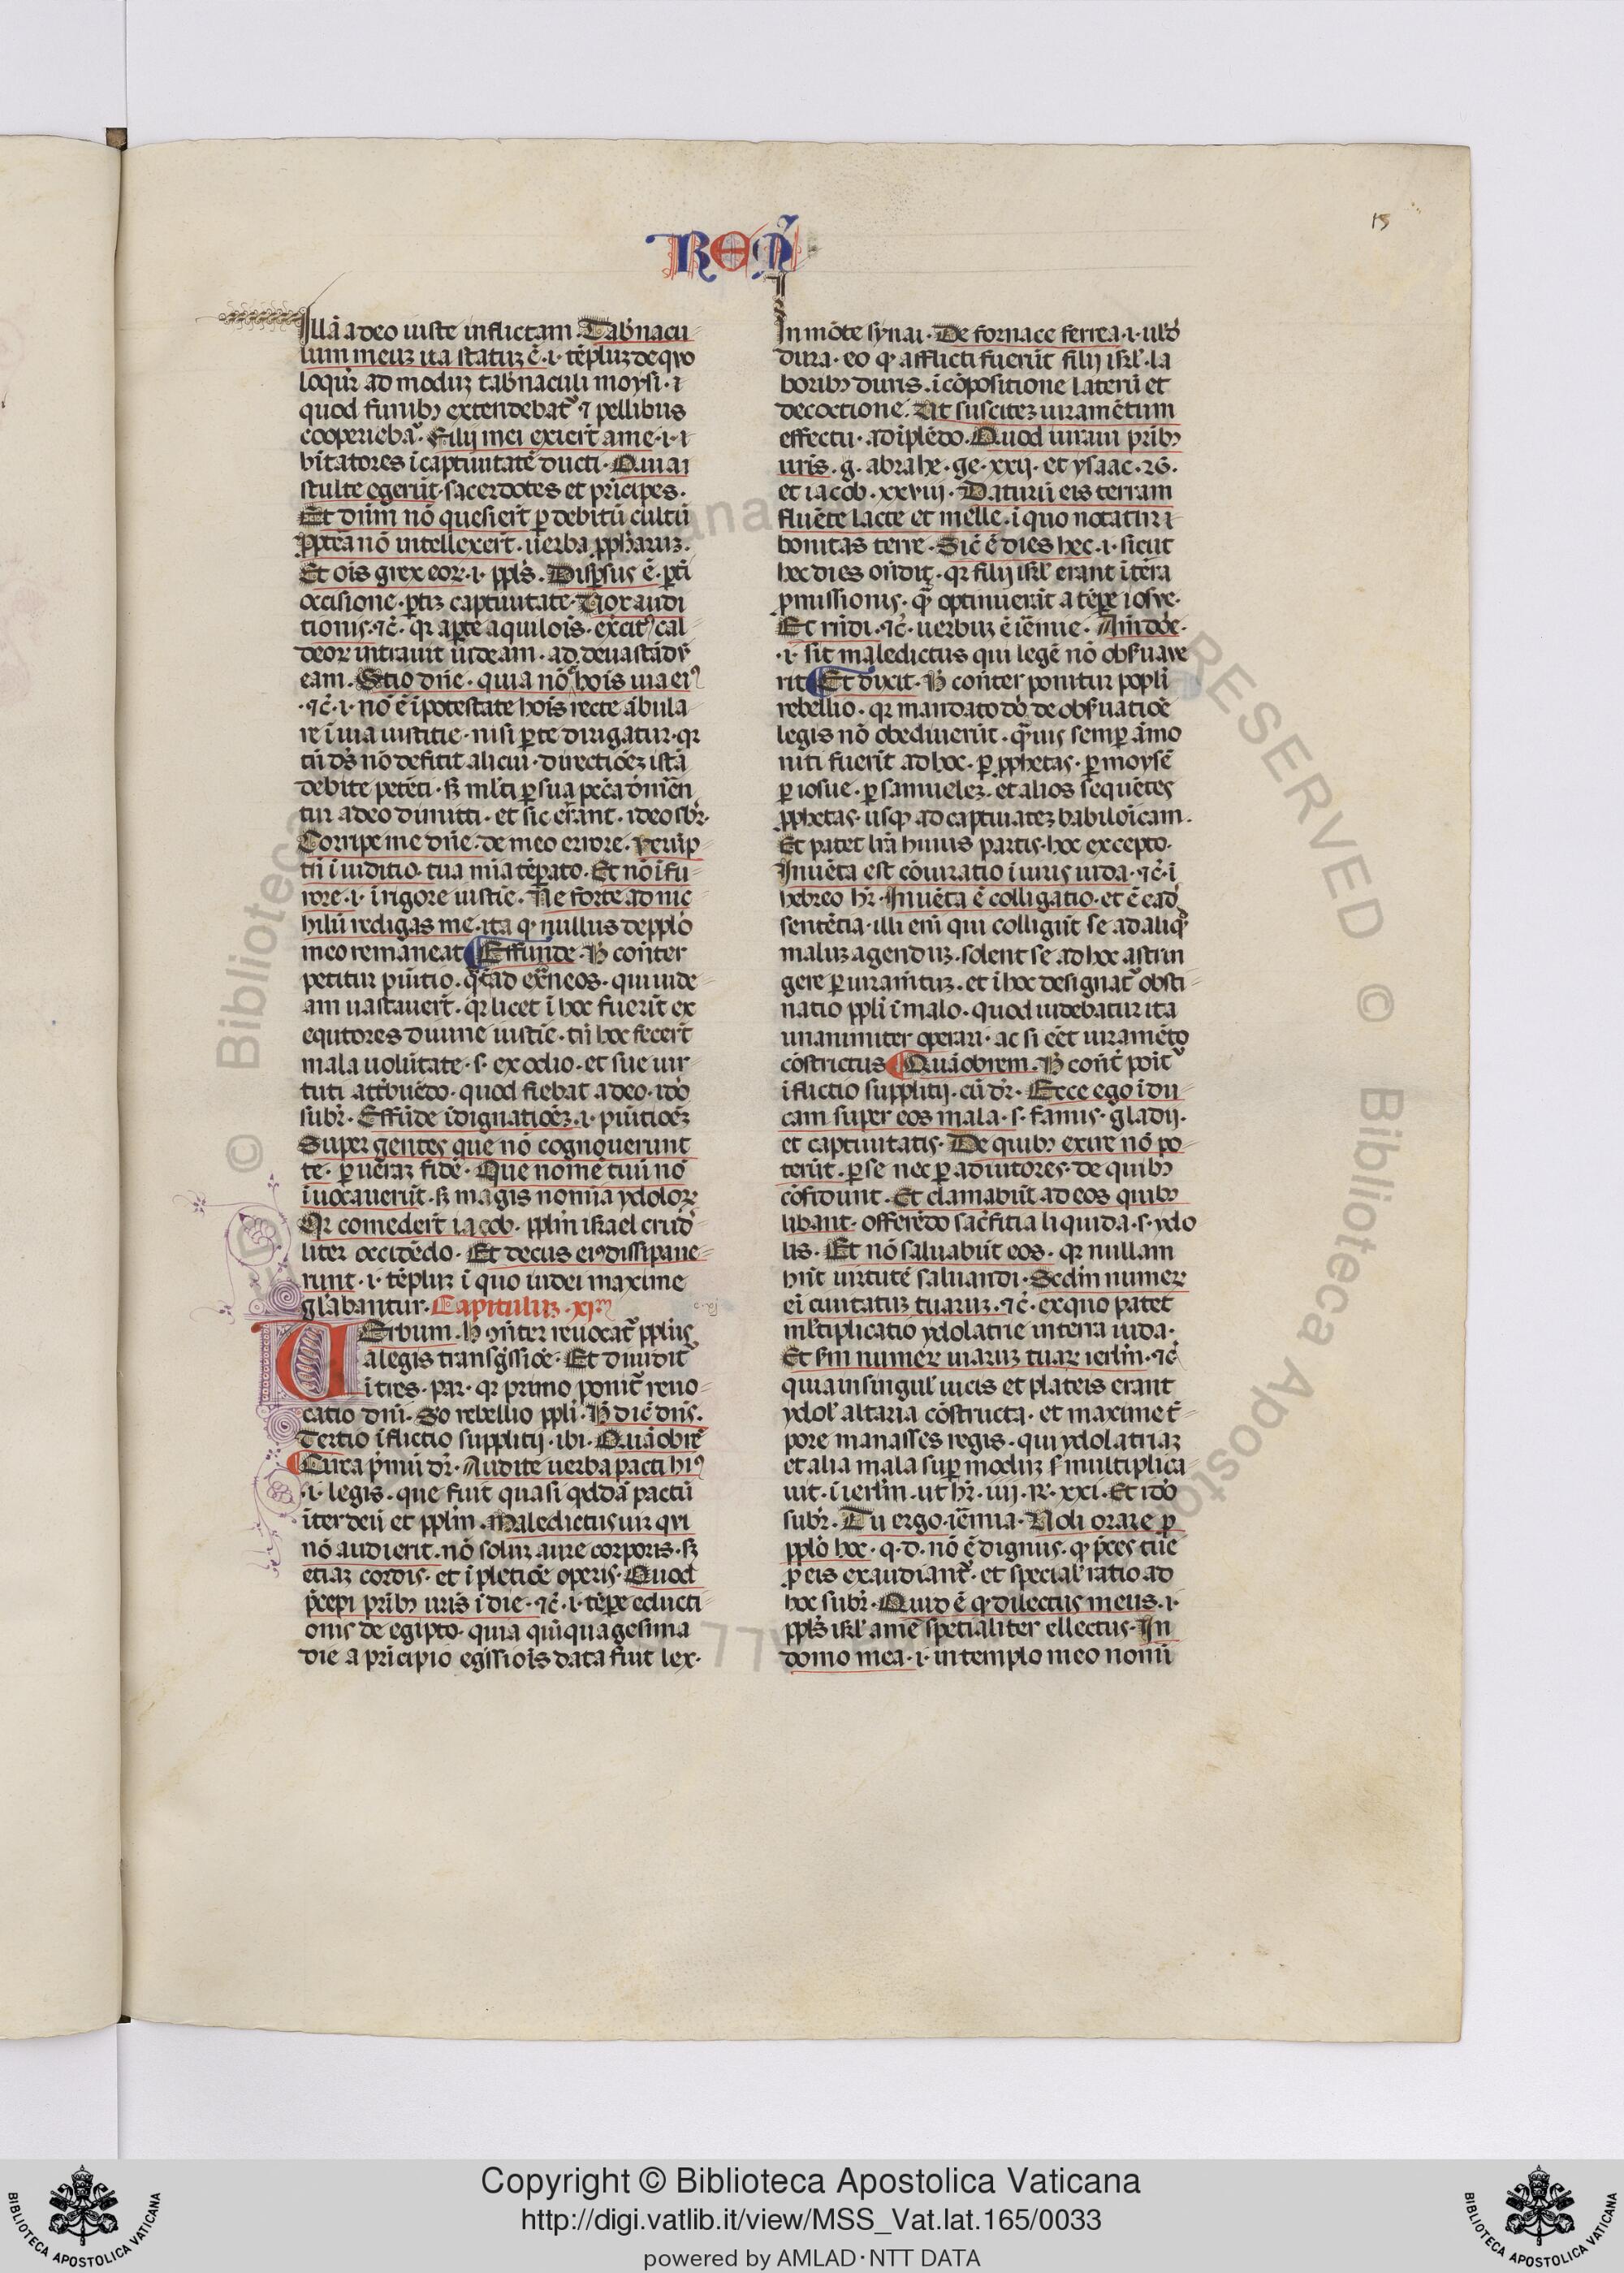 15
REM
Illā a deo iuste inflictam. Tab̄nacu
lum meuȝ ita statuȝ ē .i. tēpluȝ de quo
loquı̄r ad moduȝ tab̄naculi moysi. ⁊
quod funibꝫ extendebat᷑ ⁊ pellibus
cooperiebat᷑. Filij mei exiert̄ a me .i. ı̄
bitatores ı̄ captiuitatē ducti. Quia
stulte egerūt. sacerdotes et prı̄cipes.
Et dūm nō quesiert̄ ꝑ debitū cultū
ꝓpterea nō intellexert̄. uerba ꝓphaꝝ.
Et ois grex eoꝝ .i. ppl̄s. Disꝑsus ē. ꝑti
occisione. ꝑtiȝ captiuitate. Uox audi
tionis. ⁊c̄. qꝛ a ꝑte aquilois. exercitꝰ cal
deoꝝ intrauit iudeam. ad deuastādū
eam. Scio dn̄e. quia nō hois uia eiꝰ
.⁊c̄. i. nō ē ı̄ potestate hois recte ābula
re ı̄ uia iustitie. nisi ꝑ te dirigatur. qꝛ
tū ds̄ nō deficit alicui. directiōeȝ istā
debite petēti. sꝫ ml̄ti ꝑ sua pc̄c̄a dimēn
tur a deo dimitti. et sic errant. ideo sb̄r.
Corripe me dn̄e. de meo errore. Ueruꝑ
tn̄ ı̄ iuditio. tua mı̄a tēꝑato. Et nō ı̄ fu
rore .i. ı̄ rigore iustic̄e. Ne forte ad nic
hilū redigas me. ita ꝙ nullus de ppl̄o
meo remaneat Effunde. H̄ con̄ter
petitur pun̄itio. q̄̄tad ext̄neos. qui iude
am uastauert̄. qꝛ licet ı̄ hoc fuert̄ ex
equtores diuine iustic̄e. tn̄ hoc fecert̄
mala uolūtate. s. ex odio. et sue uir
tuti attb̄uēdo. quod fiebat a deo. ido
subr̄. Effūde ı̄dignatiōeȝ .i. pun̄itiōeȝ
Super gentes que nō cognouerunt
te. ꝑ ueraȝ fidē. Que nomē tuū nō
ı̄uocauerūt. sꝫ magis nomı̄a ydoloꝝ
Qꝛ comedert̄ iacob. ppl̄m israel crud̄
liter occidēdo. Et decus eiꝰ dissipaue
runt .i. tēpluȝ ı̄ quo iudei maxime
gl̄abantur. Capituluȝ .xı̄m̄
UErbum. H̄ con̄ter reuocat᷑ ppl̄us
a legis transg̃ssiōe. Et diuidit᷑
ı̄ tres. par. qꝛ primo ponit᷑ reuo
catio dn̄i. S̄o rebellio ppl̄i. H̄ dic̄ dn̄s.
Tertio ı̄flictio supplitij. ibi. Quāobrē
Circa p̄mū dr̄. Audite uerba pacti hiꝰ
.i. legis. que fuit quasi qd̄dā pactū
ı̄ter deū et ppl̄m. Maledictus uir qui
nō audierit. nō soluȝ aure corporis. sꝫ
etiaȝ cordis. et ı̄pletiōe operis. Quod
p̄cepi pr̄ibꝫ ur̄is ı̄ die. ⁊c̄ .i. tēꝑe educti
onis de egipto. quia quı̄quagesima
die a prı̄cipio eg̃ssiois data fuit lex.
In mōte synai. De fornace ferrea .i. ual̄d
dura. eo ꝙ afflicti fuerūt filij isrl̄. la
boribꝫ duris. ı̄ cōpositione laterū et
decoctione. Ut susciteȝ iuramētum
effectu. adı̄plēdo. Quod iuraui pr̄ibꝫ
ur̄is. g. abrahe. ge. xxij. et ysaac. 26.
et iacob. xxviij. Daturū eis terram
fluētē lacte et melle. ı̄ quo notatur ı̄
bonitas terre. Sic̄ ē dies hec .i. sicut
hec dies on̄dit. qꝛ filij isrl̄ erant ı̄ terra
ꝓmissionis. quā optinuerāt a tēꝑe iosue.
Et rn̄di. ⁊c̄. uerbuȝ ē iēmie. Am̄ dn̄e.
.i. sit maledictus qui legē nō obsuaue
rit Et dixit. H̄ con̄ter ponitur popli
rebellio. qꝛ mandato dı̄ de obsuatiōe
legis nō obediuerūt. q̄̄uis semꝑ āmo
niti fuert̄ ad hoc. ꝑ ꝓphetas. ꝑ moysē
ꝑ iosue. ꝑ samueleȝ. et alios sequētes
ꝓphetas. usqꝫ ad captiuateȝ babiloicam.
Et patet lr̄a huius partis. hoc excepto.
Inuēta est cōiuratio ı̄ uiris iuda. ⁊c̄. ı̄
hebreo hr̄. Inuēta ē colligatio. et ē ead̄
sentētia. illi eni qui colligūt se ad aliqd̄
maluȝ agenduȝ. solent se ad hoc astrin
gere ꝑ iuram̄tuȝ. et ı̄ hoc designat᷑ obsti
natio ppl̄i ı̄ malo. quod uidebatur ita
unanimiter operari. ac si eēt iuramēto
cōstrictus Quāobrem. H̄ con̄t̄ poit᷑
ı̄flictio supplitij. cū dr̄. Ecce ego ı̄du
cam super eos mala. s. famis. gladij.
et captiuitatis. De quibꝫ exire nō po
terūt. ꝑ se nec ꝑ adiutores. de quibꝫ
cōfidunt. Et clamabūt ad eos quibꝫ
libant. offerēdo sac̄fitia liquida. s. ydo
lis. Et nō saluabūt eos. qꝛ nullam
hn̄t uirtutē saluandi. Sedm̄ numeꝝ
ei ciuitatuȝ tuaruȝ. ⁊c̄. ex quo patet
ml̄tiplicatio ydolatrie in terra iuda.
Et sm̄ numeꝝ uiaruȝ tuaꝝ ierlm̄. ⁊c̄
quia in singul̄ uicis et plateis erant
ydol̄ altaria cōstructa. et maxime t̄
pore manasses regis. qui ydolatriaȝ
et alia mala suꝑ moduȝ s multiplica
uit. ı̄ ierlm̄. ut hr̄. iiij. R. xxi. Et ido
subr̄. Tu ergo. iēmia. Noli orare ꝓ
ppl̄o hoc. q. d. nō ē dignus. ꝙ p̄ces tue
ꝓ eis exaudiant᷑. et special̄ ratio ad
hoc subr̄. Quid ē ꝙ dilectus meus .i.
ppl̄s isrl̄ a me specialiter ellectus. In
domo mea .i. in templo meo nomı̄
Copyright © Biblioteca Apostolica Vaticana
http://digi.vatlib.it/view/MSS_Vat.lat.165/0033
powered by AMLAD·NTT DATA
BIBLIOTECA APOSTOLICA VATICANA
BIBLIOTECA APOSTOLICA VATICANA